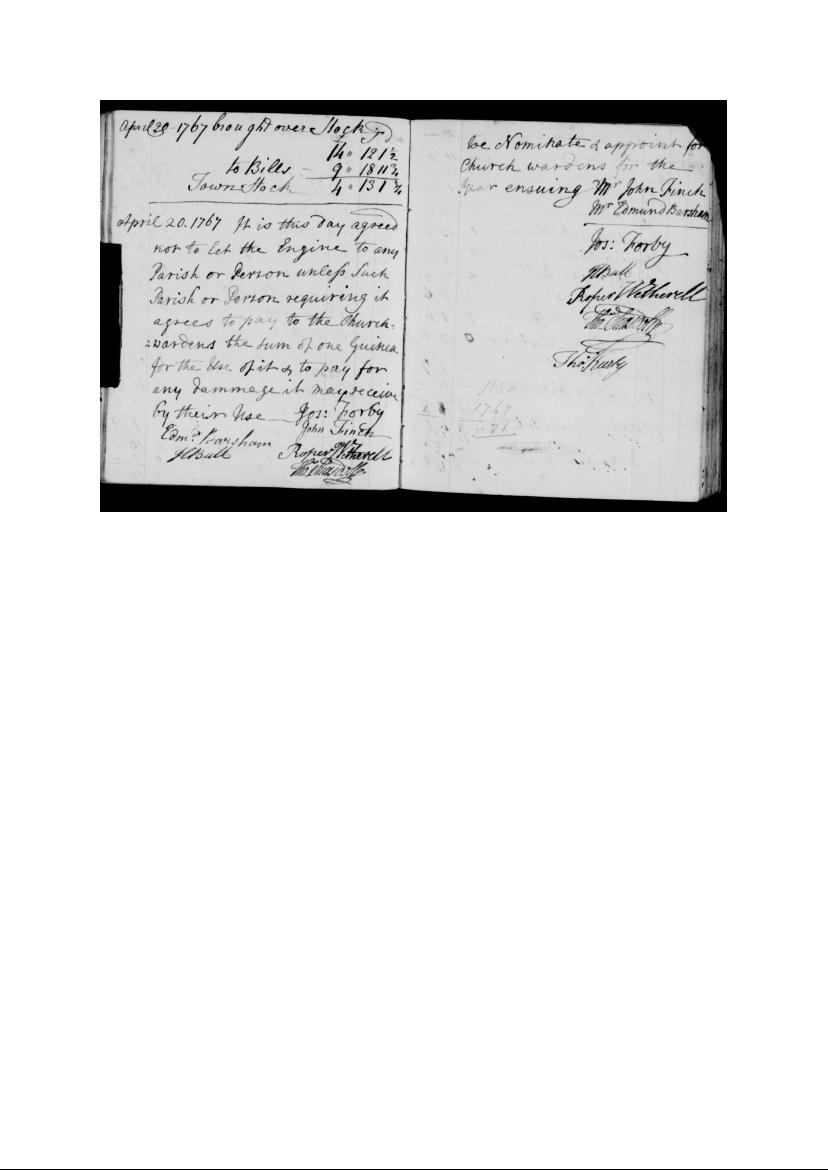 April 20 1767 brought over Stock
14 " 12 1½
to Bills — 9 " 18 11¾
Town Stock 4 " 13 1¾
April 20. 1767 It is this Day agreed
not to let the Engine to any
Parish or Person unless Such
Parish or Person requiring it
agrees to pay to the Church=
=wardens the sum of one Guinea
for the Use of it & to pay for
any dammage it may receive
by their Use — Jos: Forby
John Finch
Edmd. Barsham
Roper Wetherell
Tho:
We Nominate & appoint for
Church wardens for the
Year ensuing Mr John Finch
Mr Edmund Barsham
Jos: Forby
Roper Wetherell
Tho:
Thos
1767